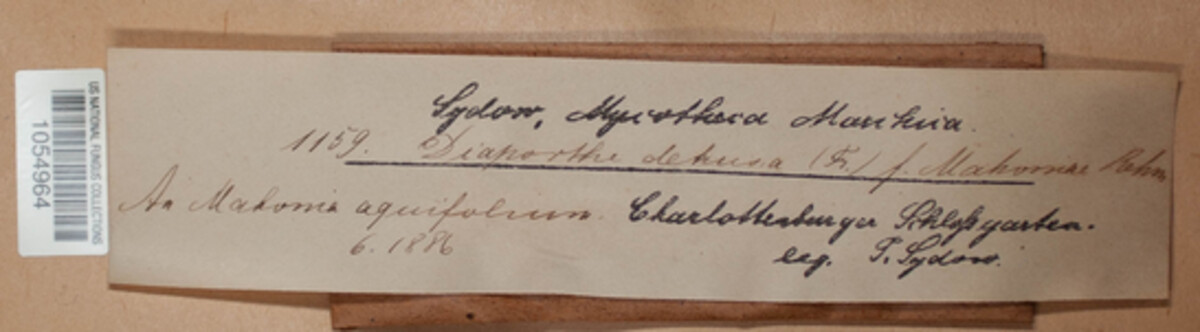 Sydow, Mycotheca Marchica.
1159. Diaporthe detrusa (Fr.) f. Mahoniae Rehm
An Mahonia aquifolium. Charlottenburger Schloßgarten.
6. 1886
leg. P. Sydow.
US NATIONAL FUNGUS COLLECTIONS
1054964